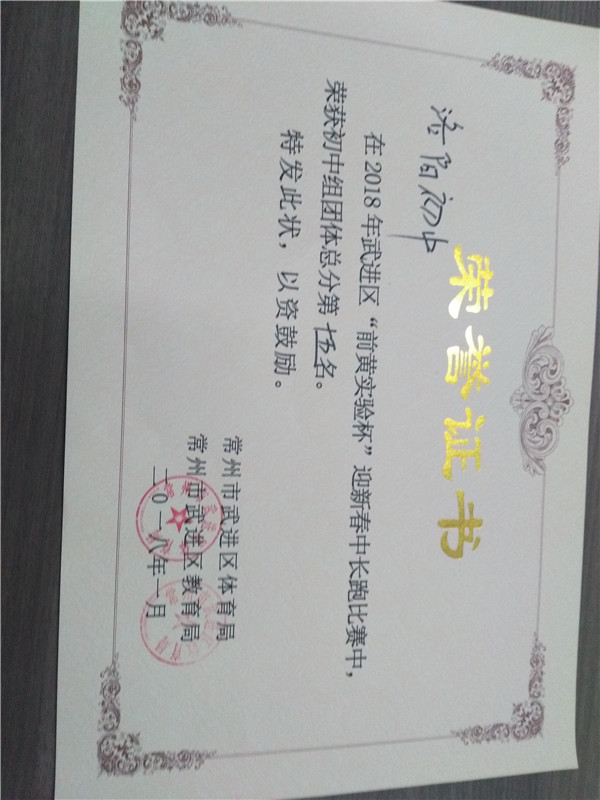 荣誉证书
洛阳初中
在2018年武进区“前黄实验杯”迎新春中长跑比赛中，
荣获初中组团体总分第十五名。
特发此状，以资鼓励。
常州市武进区体育局
常州市武进区教育局
二〇一八年一月